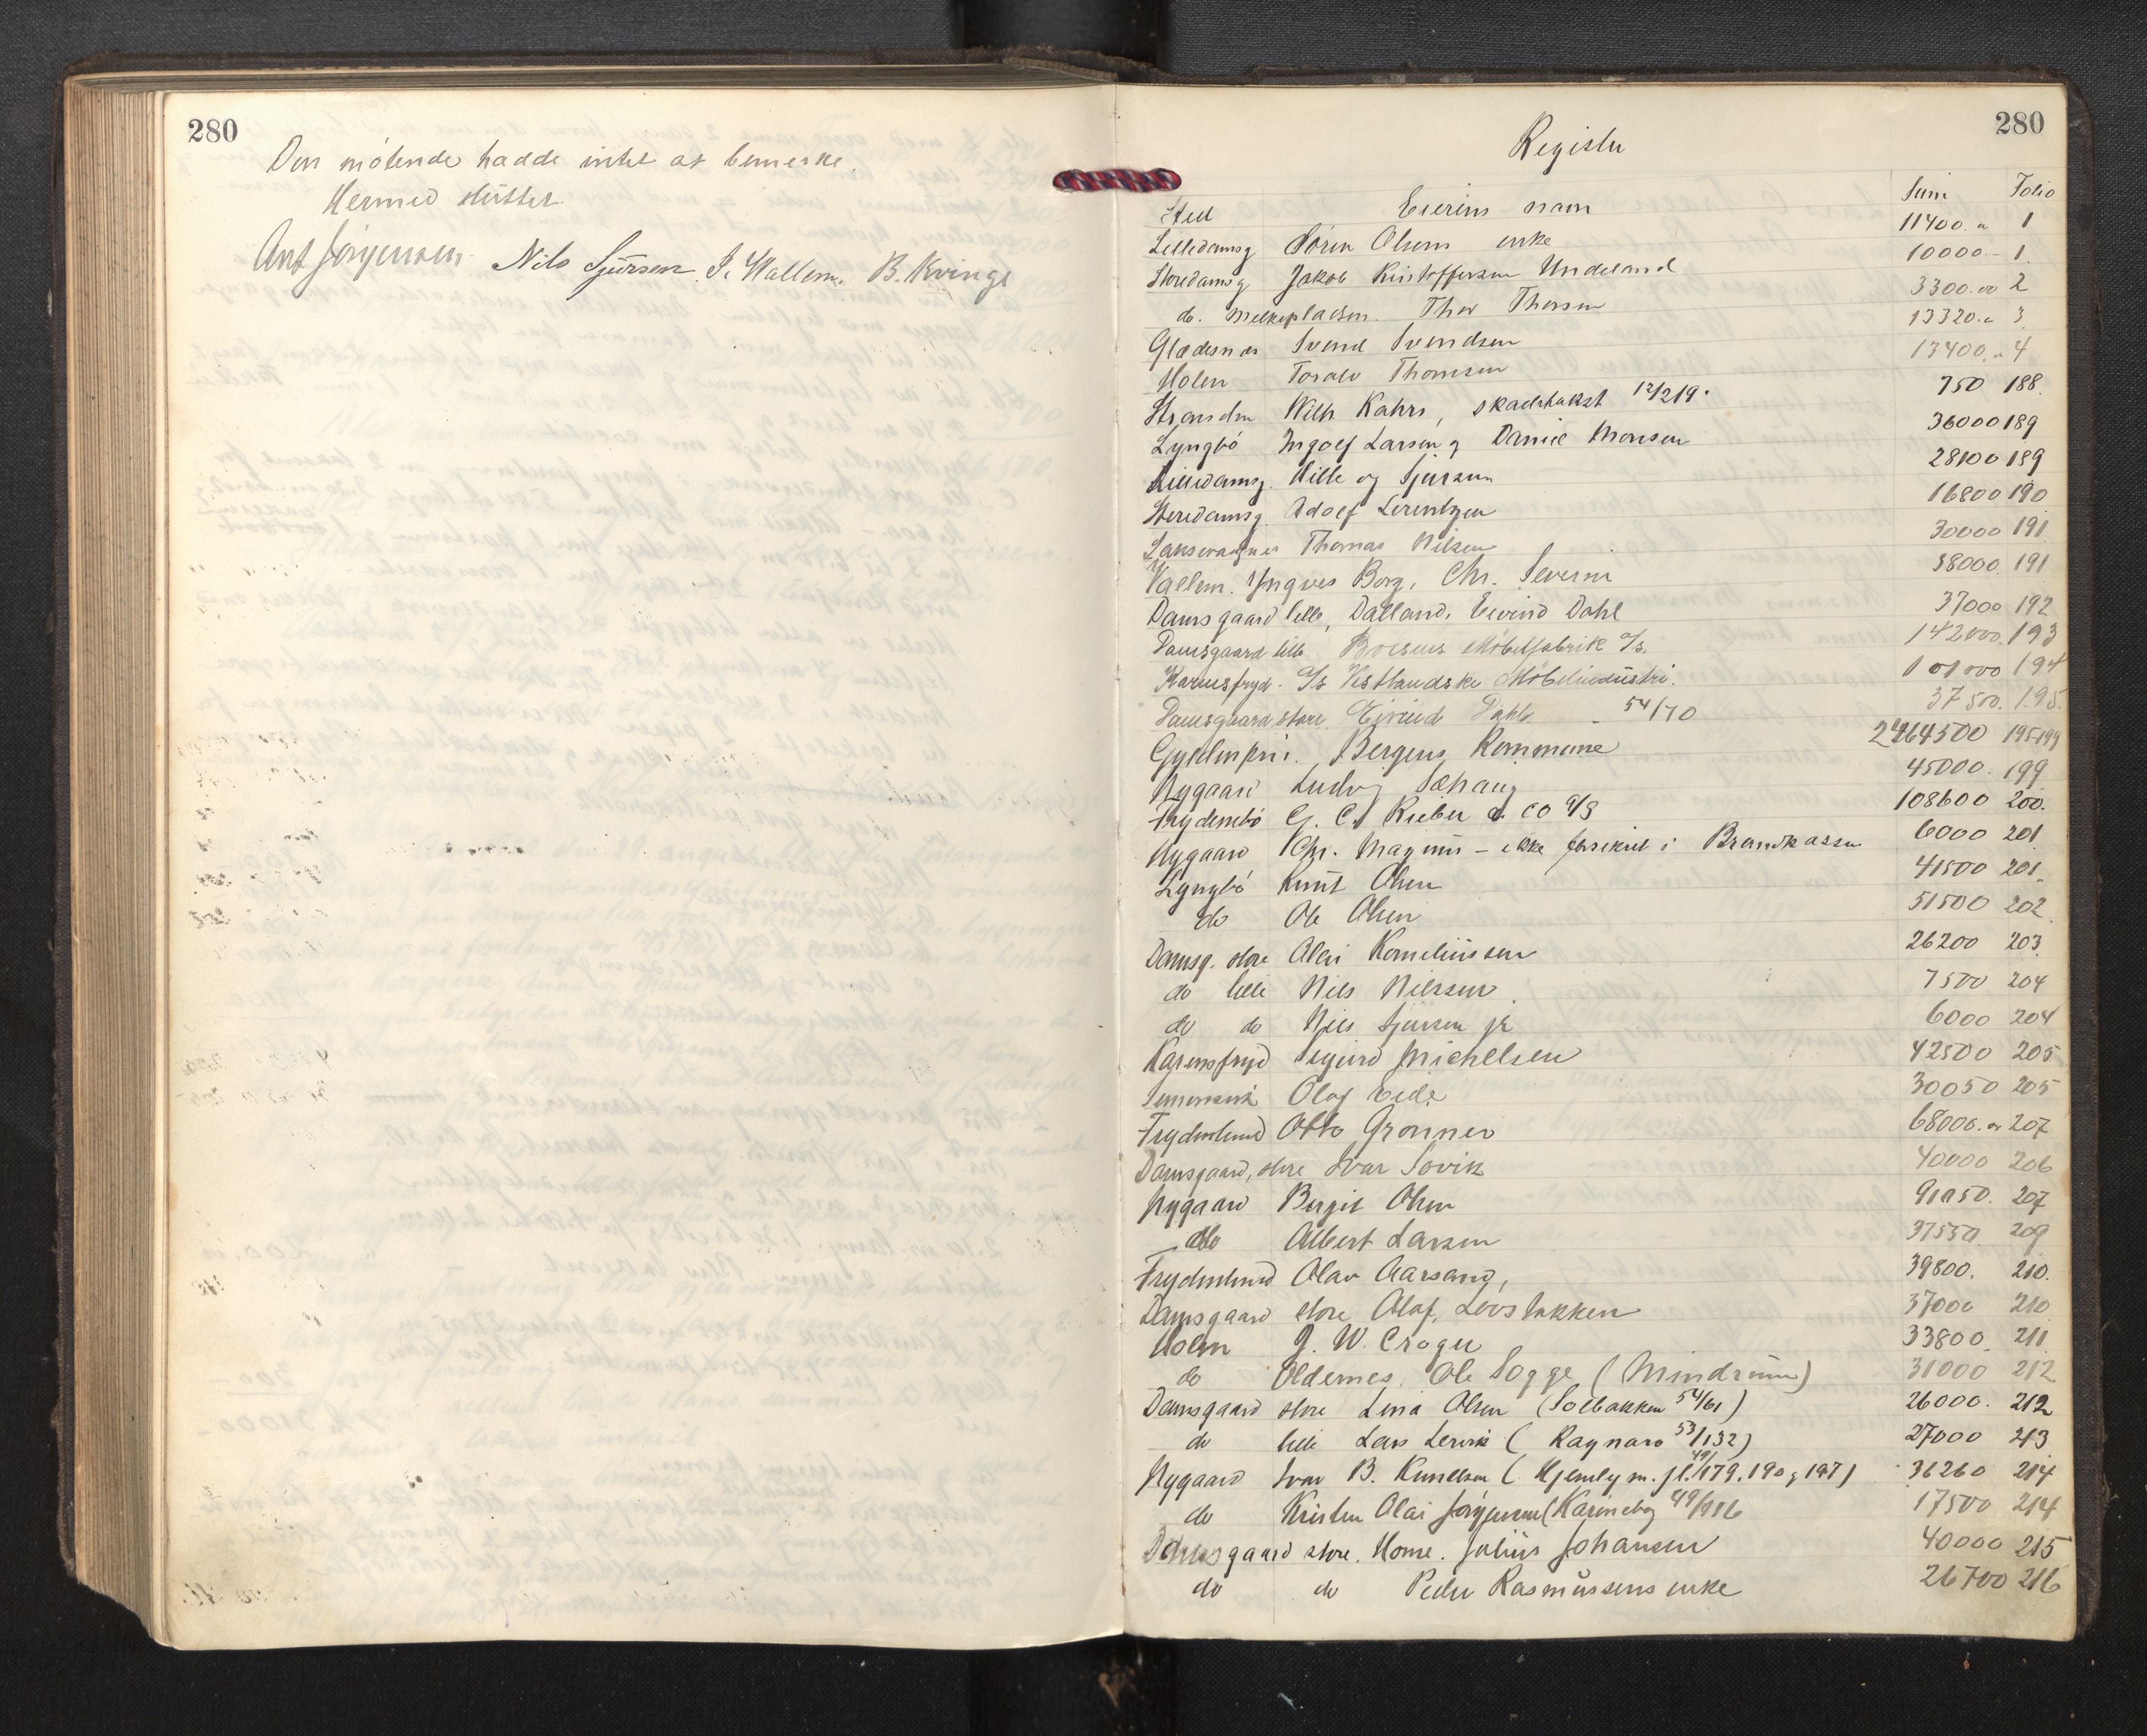 280
Den møtende hadde intet at bemerke.
Hermed sluttet.
Ant Jørgensen Nils Sjursen J. Wallem. B. Kvinge
280
Register
Sted Eierens navn Sum Folio
Lilledamsg Søren Olsens enke 11400.- 1
Storedamsg Jakob Kristoffersen Undeland 10000- 1.
do. Melkepladsen. Thor Thorsen 3300.00 2
Gladesnæs Svend Svendsen 13320.- 3
Holen Toralv Thomsen 13400.- 4
Stranden Wilh Kahrs, skadetakst 12/2 19. 750 188
Lyngbø Ingolf Larsen og Daniel Monsen 36000 189
Lilledamsg. Wille og Sjursen 28100 189
Storedamsg. Adolf Lorentzen 16800 190
Laksevaagnes Thomas Nilsen 30000 191
Vallem. Yngves Borg, Chr. Severin 38000. 191
Damsgaard lille, Dalland, Eivind Dahl 37000 192
Damsgaard lille Møbelfabrik A/s. 142000. 193
Karensfryd. A/s Vestlandske Møbelindustri. 101000 194
Damsgaard store Eivind Dahl - 54/70 37500. 195.
Gyldenpris. Bergens Kommune 2464500 195-199
Nygaard Ludvig Sæhaug 45000. 199
Frydenbø G. C. Rieber & Co A/S 108600 200.
Nygaard Chr. Magnus - ikke forsikret i Brandkassen 6000 201
Lyngbø Knut Olsen 41500 201.
do Ole Olsen 51500 202
Damsg. store Olai Korneliussen 26200 203
do lille Nils Nilssen 7500 204
do do Nils Sjursen jr 6000 204
Karensfryd Sigurd Michelsen 42500 205
Olaf Eide 30050 205
Frydenlund Otto Grønner 68000.- 207
Damsgaard, store Ivar Søvik 40000 206
Nygaard Bergit Olsen 91050. 207
do Albert Larsen 37550 209
Frydenlund Olav Aarsand, 39800. 210.
Damsgaard store Olaf Løvstakken 37000 210
Holen J. W. Croger 33800. 211
do Oldernes. Ole Sogge (Mindrum) 31000 212
Damsgaard store Lina Olsen (Solbakken 54/61) 26000. 212
do lille Lars Lervik (Ragnaro 53/132) 27000 213
Nygaard Ivar B. Knudsen (Hjemly m. fl. 49/179. 190 og 197) 36260 214
do Kristen Olai Jørgensen (Karinebg 49/916 17500 214
Damsgaard store. Home. Julius Johansen 40000 215
do do Peder Rasmussens enke 26700 216